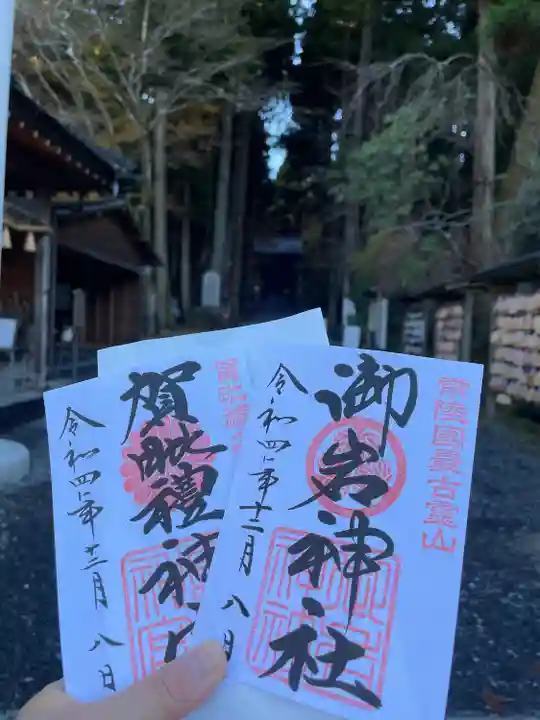 常陸國最古霊山
御岩神社
令和四年十二月八日
賀毗禮神
令和四年十二月八日